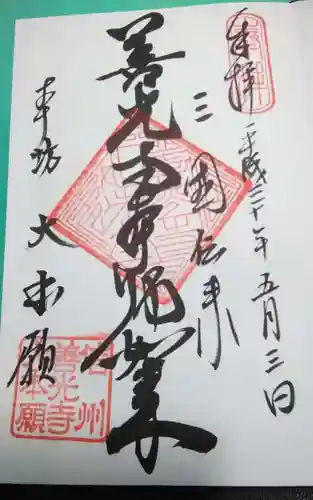 奉拝
平成三十年五月三日
三国伝来
善光寺本師如来
本坊 大本願
信州
善光寺
本願